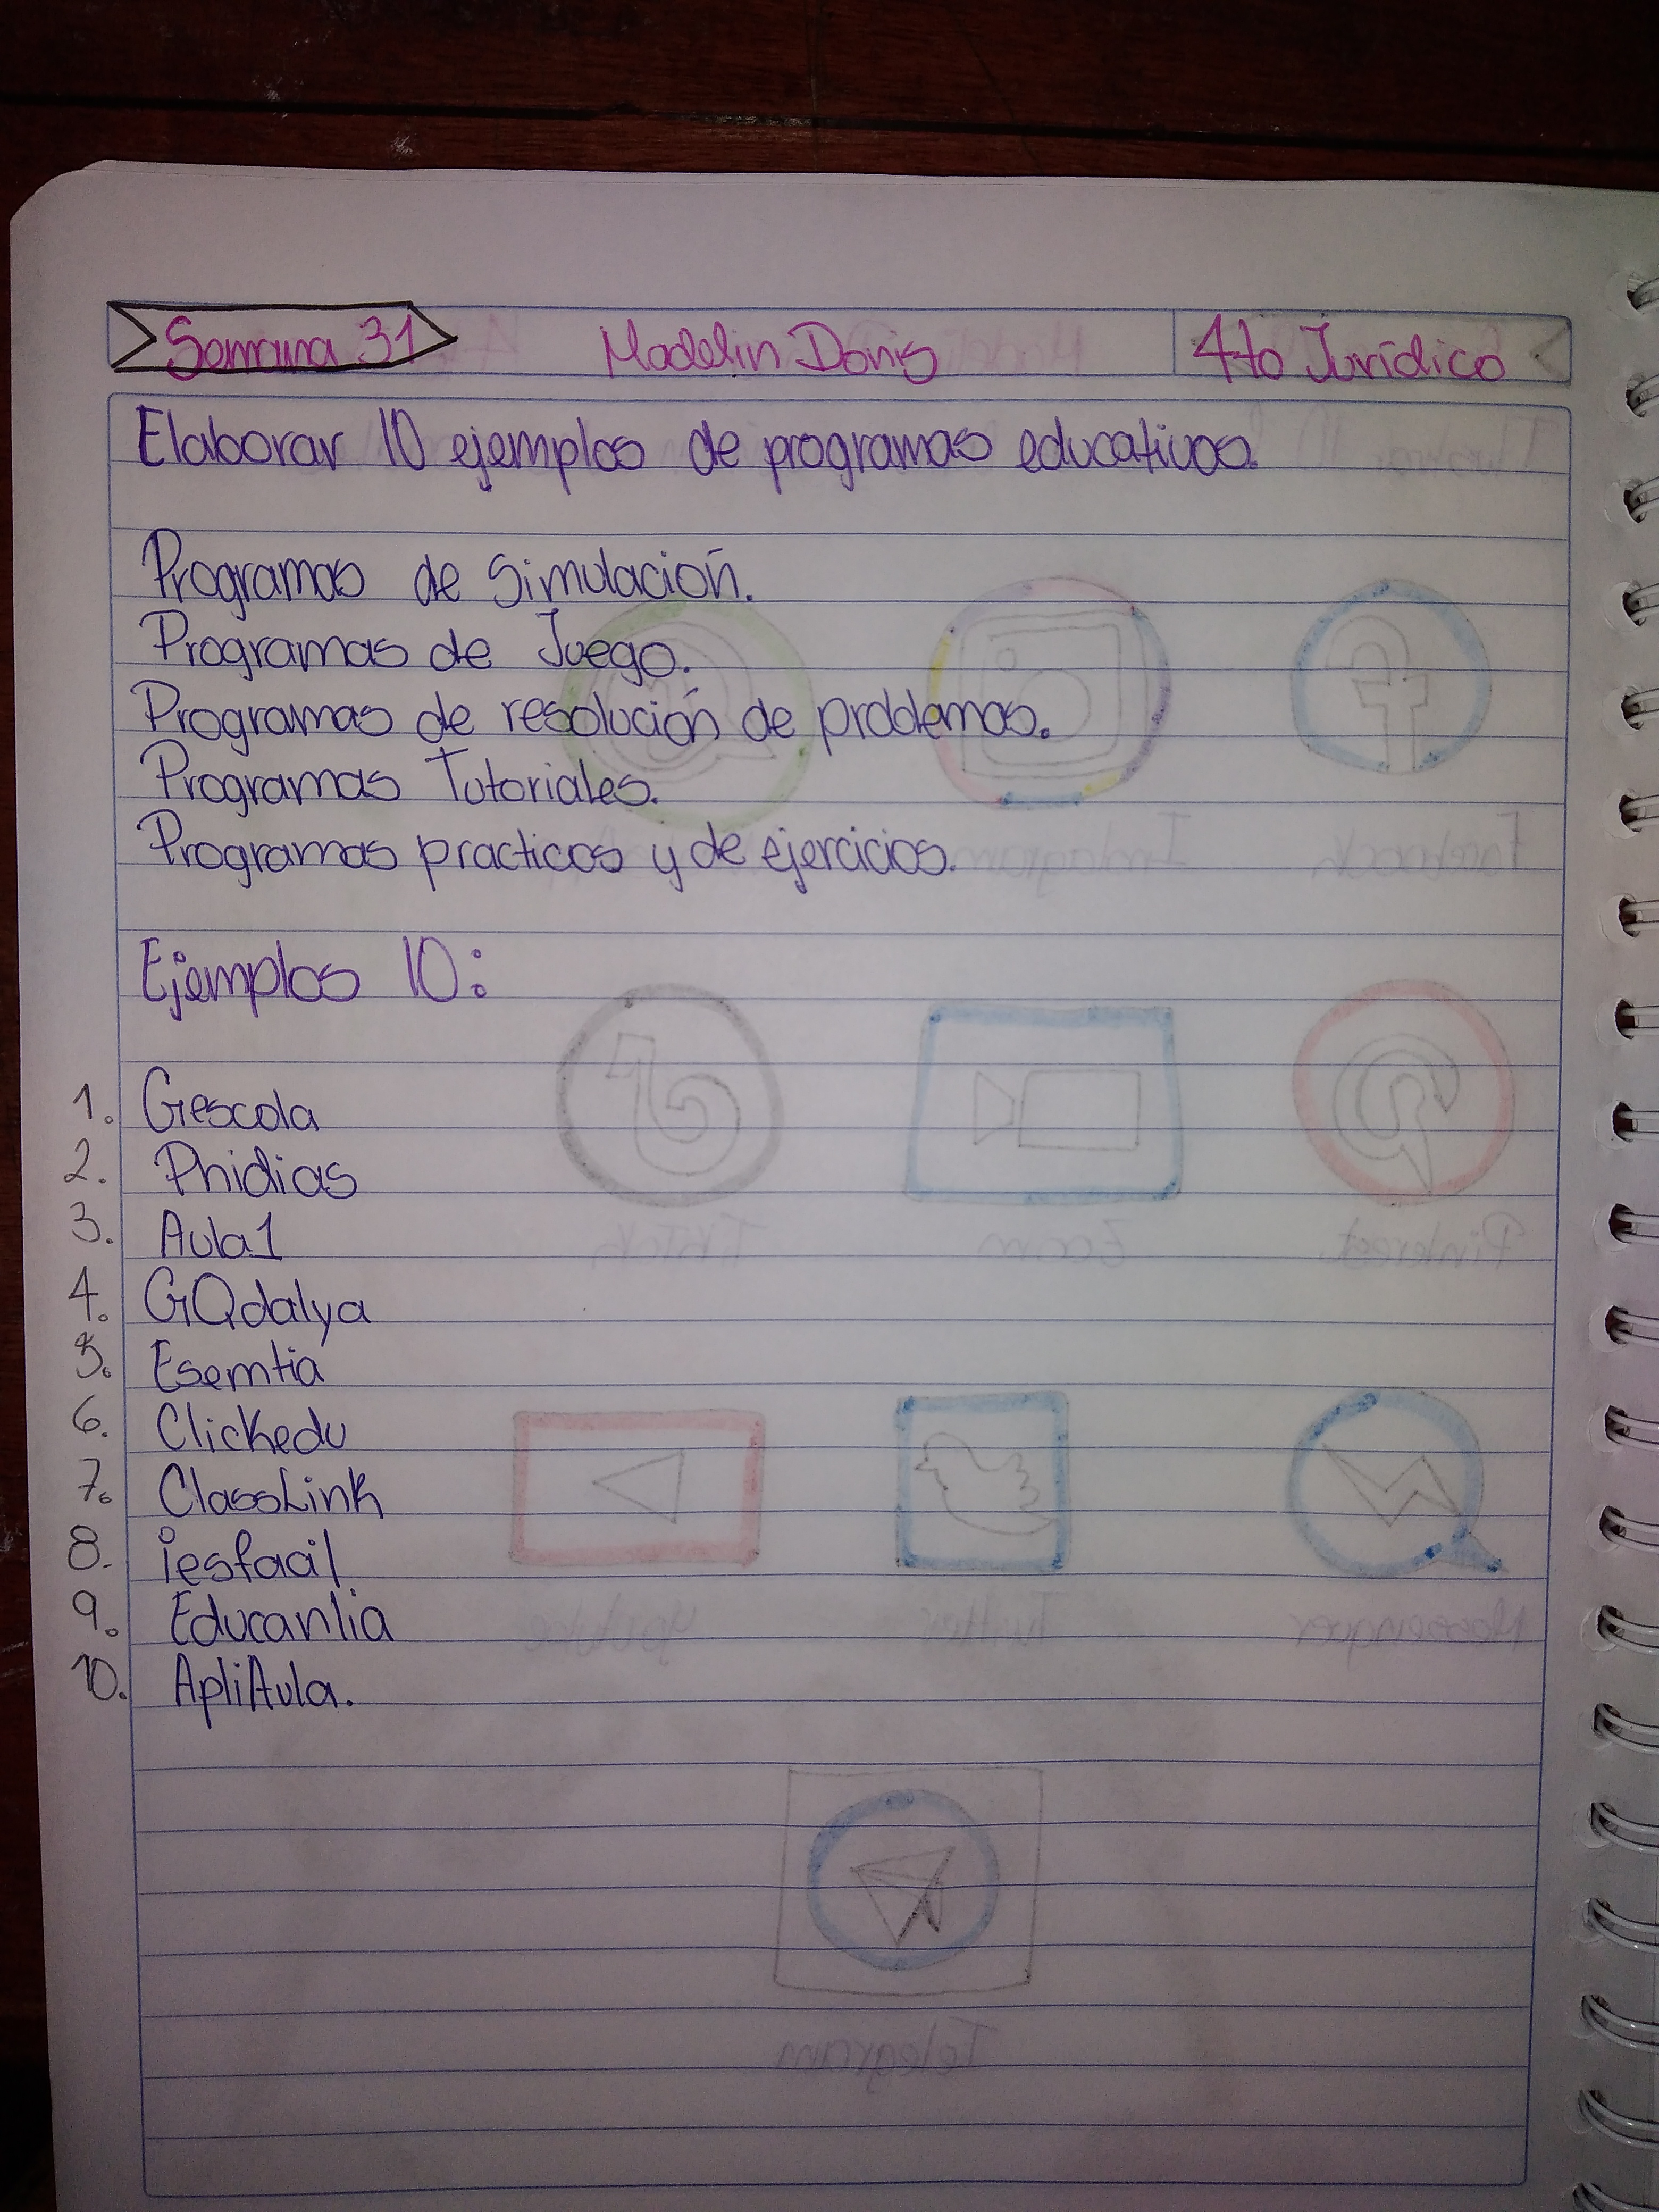 Semana 31 Madelin Donis 4to Jurídico
Elaborar 10 ejemplos de programas educativos.
Programas de Simulación.
Programas de Juego.
Programas de resolución de problemas.
Programas Tutoriales.
Programas practicos y de ejercicios.
Ejemplos 10:
1. Gescola
2. Phidias
3. Aula1
4. GQdalya
5. Esemtia
6. Clickedu
7. ClassLink
8. iesfacil
9. Educanlia
10. ApliAula.
Facebook Instagram
Pinterest Zoom TikTok
Messenguer Twitter Youtube
Telegram